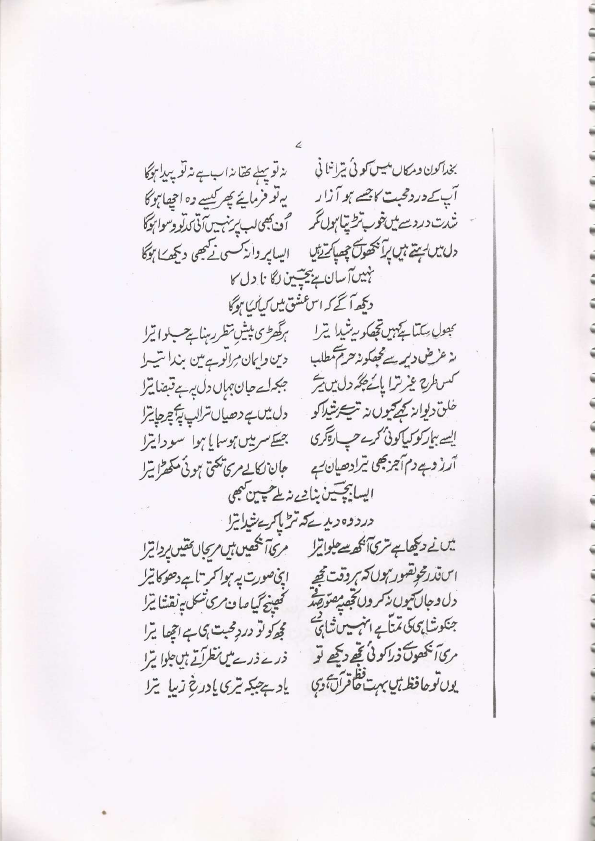 ۷
بخدا کون و مکاں میں کوئی تیرا ثانی نہ تو پہلے تھا نہ اب ہے نہ تو پیدا ہوگا
آپ کے درد محبت کا جسے ہو آزار یہ تو فرمائیے پھر کیسے وہ اچھا ہوگا
شدت درد سے میں خوب تڑپتا ہوں مگر اُن بھی لب پر نہیں آتی کہ تو رسوا ہوگا
دل میں رہتے ہیں پر آنکھوں سے چھپا کرتے ہیں ایسا پردا نہ کسی نے کبھی دیکھا ہوگا
نہیں آساں ہے بیچین لگانا دل کا
دیکھ آگے کہ اس عشق میں کیا کیا ہوگا
بھول سکتا ہے کہیں تجھ کو یہ شیدا تیرا ہر گھڑی پیش نظر رہتا ہے جلوا تیرا
نہ غرض دیر سے مجھ کو نہ حرم سے مطلب دین و ایمان مرا تو ہے میں بندا تیرا
کس طرح غیر ترا پائے جگہ دل میں مرے جبکہ اے جان جہاں دل پہ ہے قبضا تیرا
خلق دیوانہ کہے کیوں نہ ترے شیدا کو دل میں ہے دھیاں ترا لب پہ ہے چرچا تیرا
ایسے بیمار کو کیا کوئی کرے چارہ گری جسکے سر میں ہو سمایا ہوا سودا تیرا
آرزو ہے دم آخر بھی ترا دھیان رہے جان نکلے مری تکتی ہوئی مکھڑا تیرا
ایسا بیچین بنا دے نہ ملے چین کبھی
درد وہ دیدے کہ تڑپا کرے شیدا تیرا
میں نے دیکھا ہے تری آنکھ سے جلوا تیرا مری آنکھیں ہیں مری جاں تھیں پردا تیرا
اس قدر محو تصور ہوں کہ ہر وقت مجھے اپنی صورت پہ ہوا کرتا ہے دھوکا تیرا
دل و جاں کیوں نہ کروں تجھ پہ مصور صدقے کھینچ گیا صاف مری شکل پہ نقشا تیرا
جنکو شاہی کی تمنا ہے انہیں شاہی دے مجھ کو تو درد محبت ہی ہے اچھا تیرا
مری آنکھوں سے ذرا کوئی تجھے دیکھے تو ذرے ذرے میں نظر آتے ہیں جلوا تیرا
یوں تو حافظ ہیں بہت حافظ قرآں ہے وہی یاد ہے جبکہ تیری یاد رخ زیبا تیرا